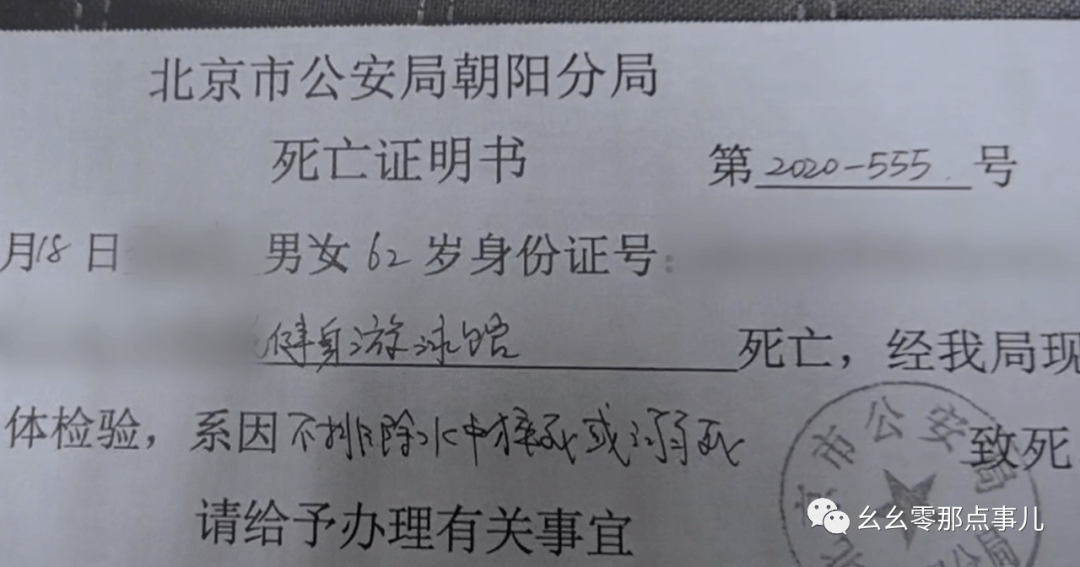 北京市公安局朝阳分局
死亡证明书 第2020-555号
月18日 男女62岁身份证号:
健身游泳馆 死亡，经我局现
体检验，系因不排除水中猝死或溺死 致死
请给予办理有关事宜
京市公安局
幺幺零那点事儿